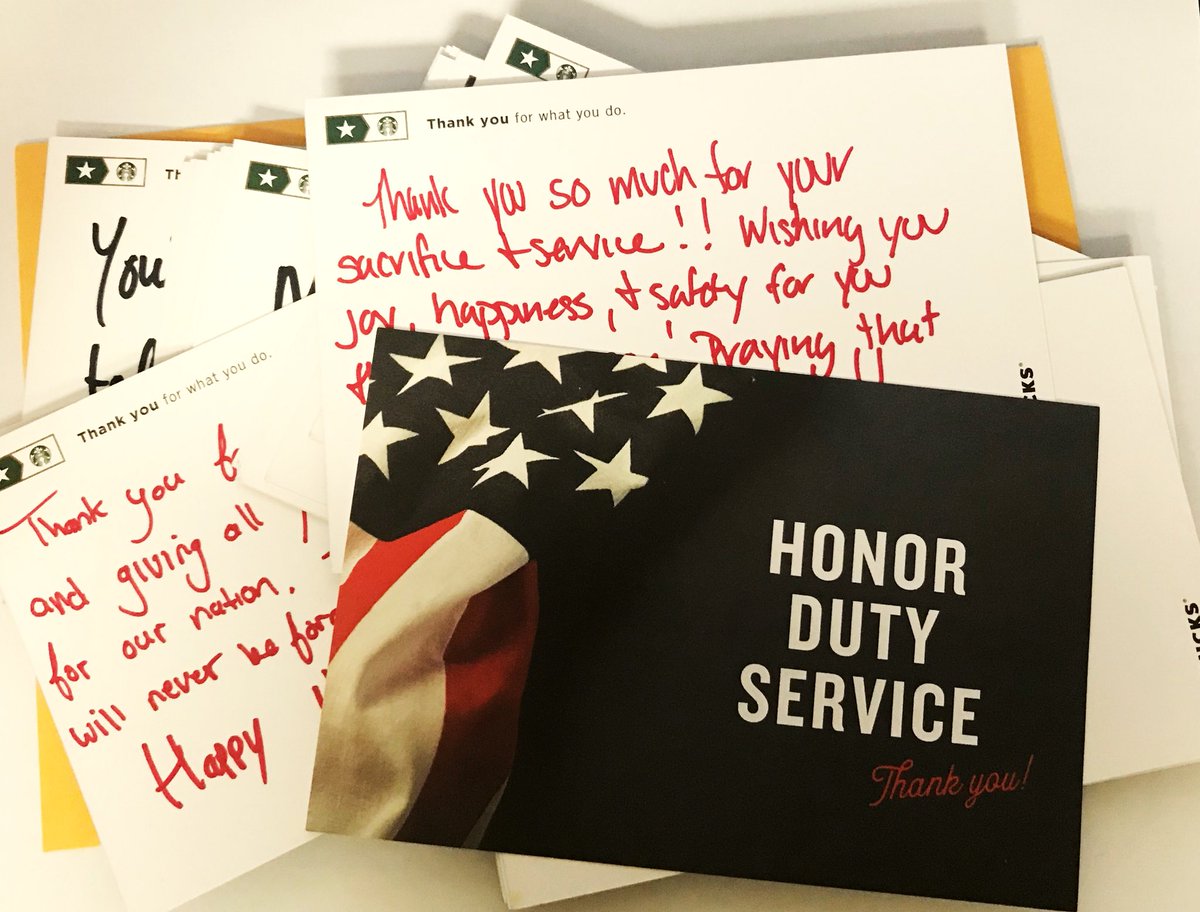 Thank you for what you do.
Thank you so much for your
sacrifice + service!! Wishing you
joy, happiness, + safety for you
Praying that
You
Thank you for what you do.
Thank you
and giving all
for our nation.
will never be
Happy
HONOR
DUTY
SERVICE
Thank you!